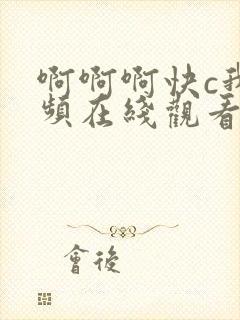 啊啊啊快c我
頻在綫觀看
會後